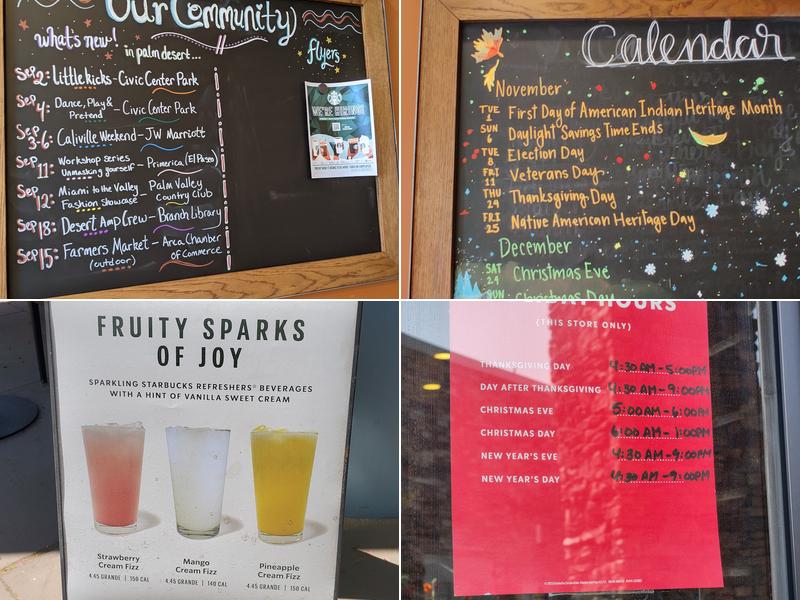 Our Community
what's new!
in palm desert...
flyers
Sep 2: Little kicks - Civic Center Park
Sep 4: Dance, Play & Pretend - Civic Center Park
Sep 3-6: Caliville Weekend - JW Marriott
Sep 11: Workshop series Unmasking yourself - Primerica (El Paso)
Sep 12: Miami to the Valley Fashion Showcase - Palm Valley Country Club
Sep 18: Desert Amp Crew - Branch Library
Sep 15: Farmers Market (outdoor) - Arca Chamber of Commerce
WE'RE HIRING!
Calendar
November
TUE 1 First Day of American Indian Heritage Month
SUN Daylight Savings Time Ends
TUE 8 Election Day
FRI 11 Veterans Day
THU 24 Thanksgiving Day
FRI 25 Native American Heritage Day
December
SAT 24 Christmas Eve
SUN Christmas Day
FRUITY SPARKS
OF JOY
SPARKLING STARBUCKS REFRESHERS® BEVERAGES
WITH A HINT OF VANILLA SWEET CREAM
Strawberry
Cream Fizz
4.45 GRANDE | 150 CAL
Mango
Cream Fizz
4.45 GRANDE | 140 CAL
Pineapple
Cream Fizz
4.45 GRANDE | 150 CAL
HOURS
(THIS STORE ONLY)
THANKSGIVING DAY 4:30 AM - 5:00PM
DAY AFTER THANKSGIVING 4:30 AM - 9:00PM
CHRISTMAS EVE 5:00 AM - 6:00 PM
CHRISTMAS DAY 6:00 AM - 1:00PM
NEW YEAR'S EVE 4:30 AM - 9:00PM
NEW YEAR'S DAY 4:30 AM - 9:00PM